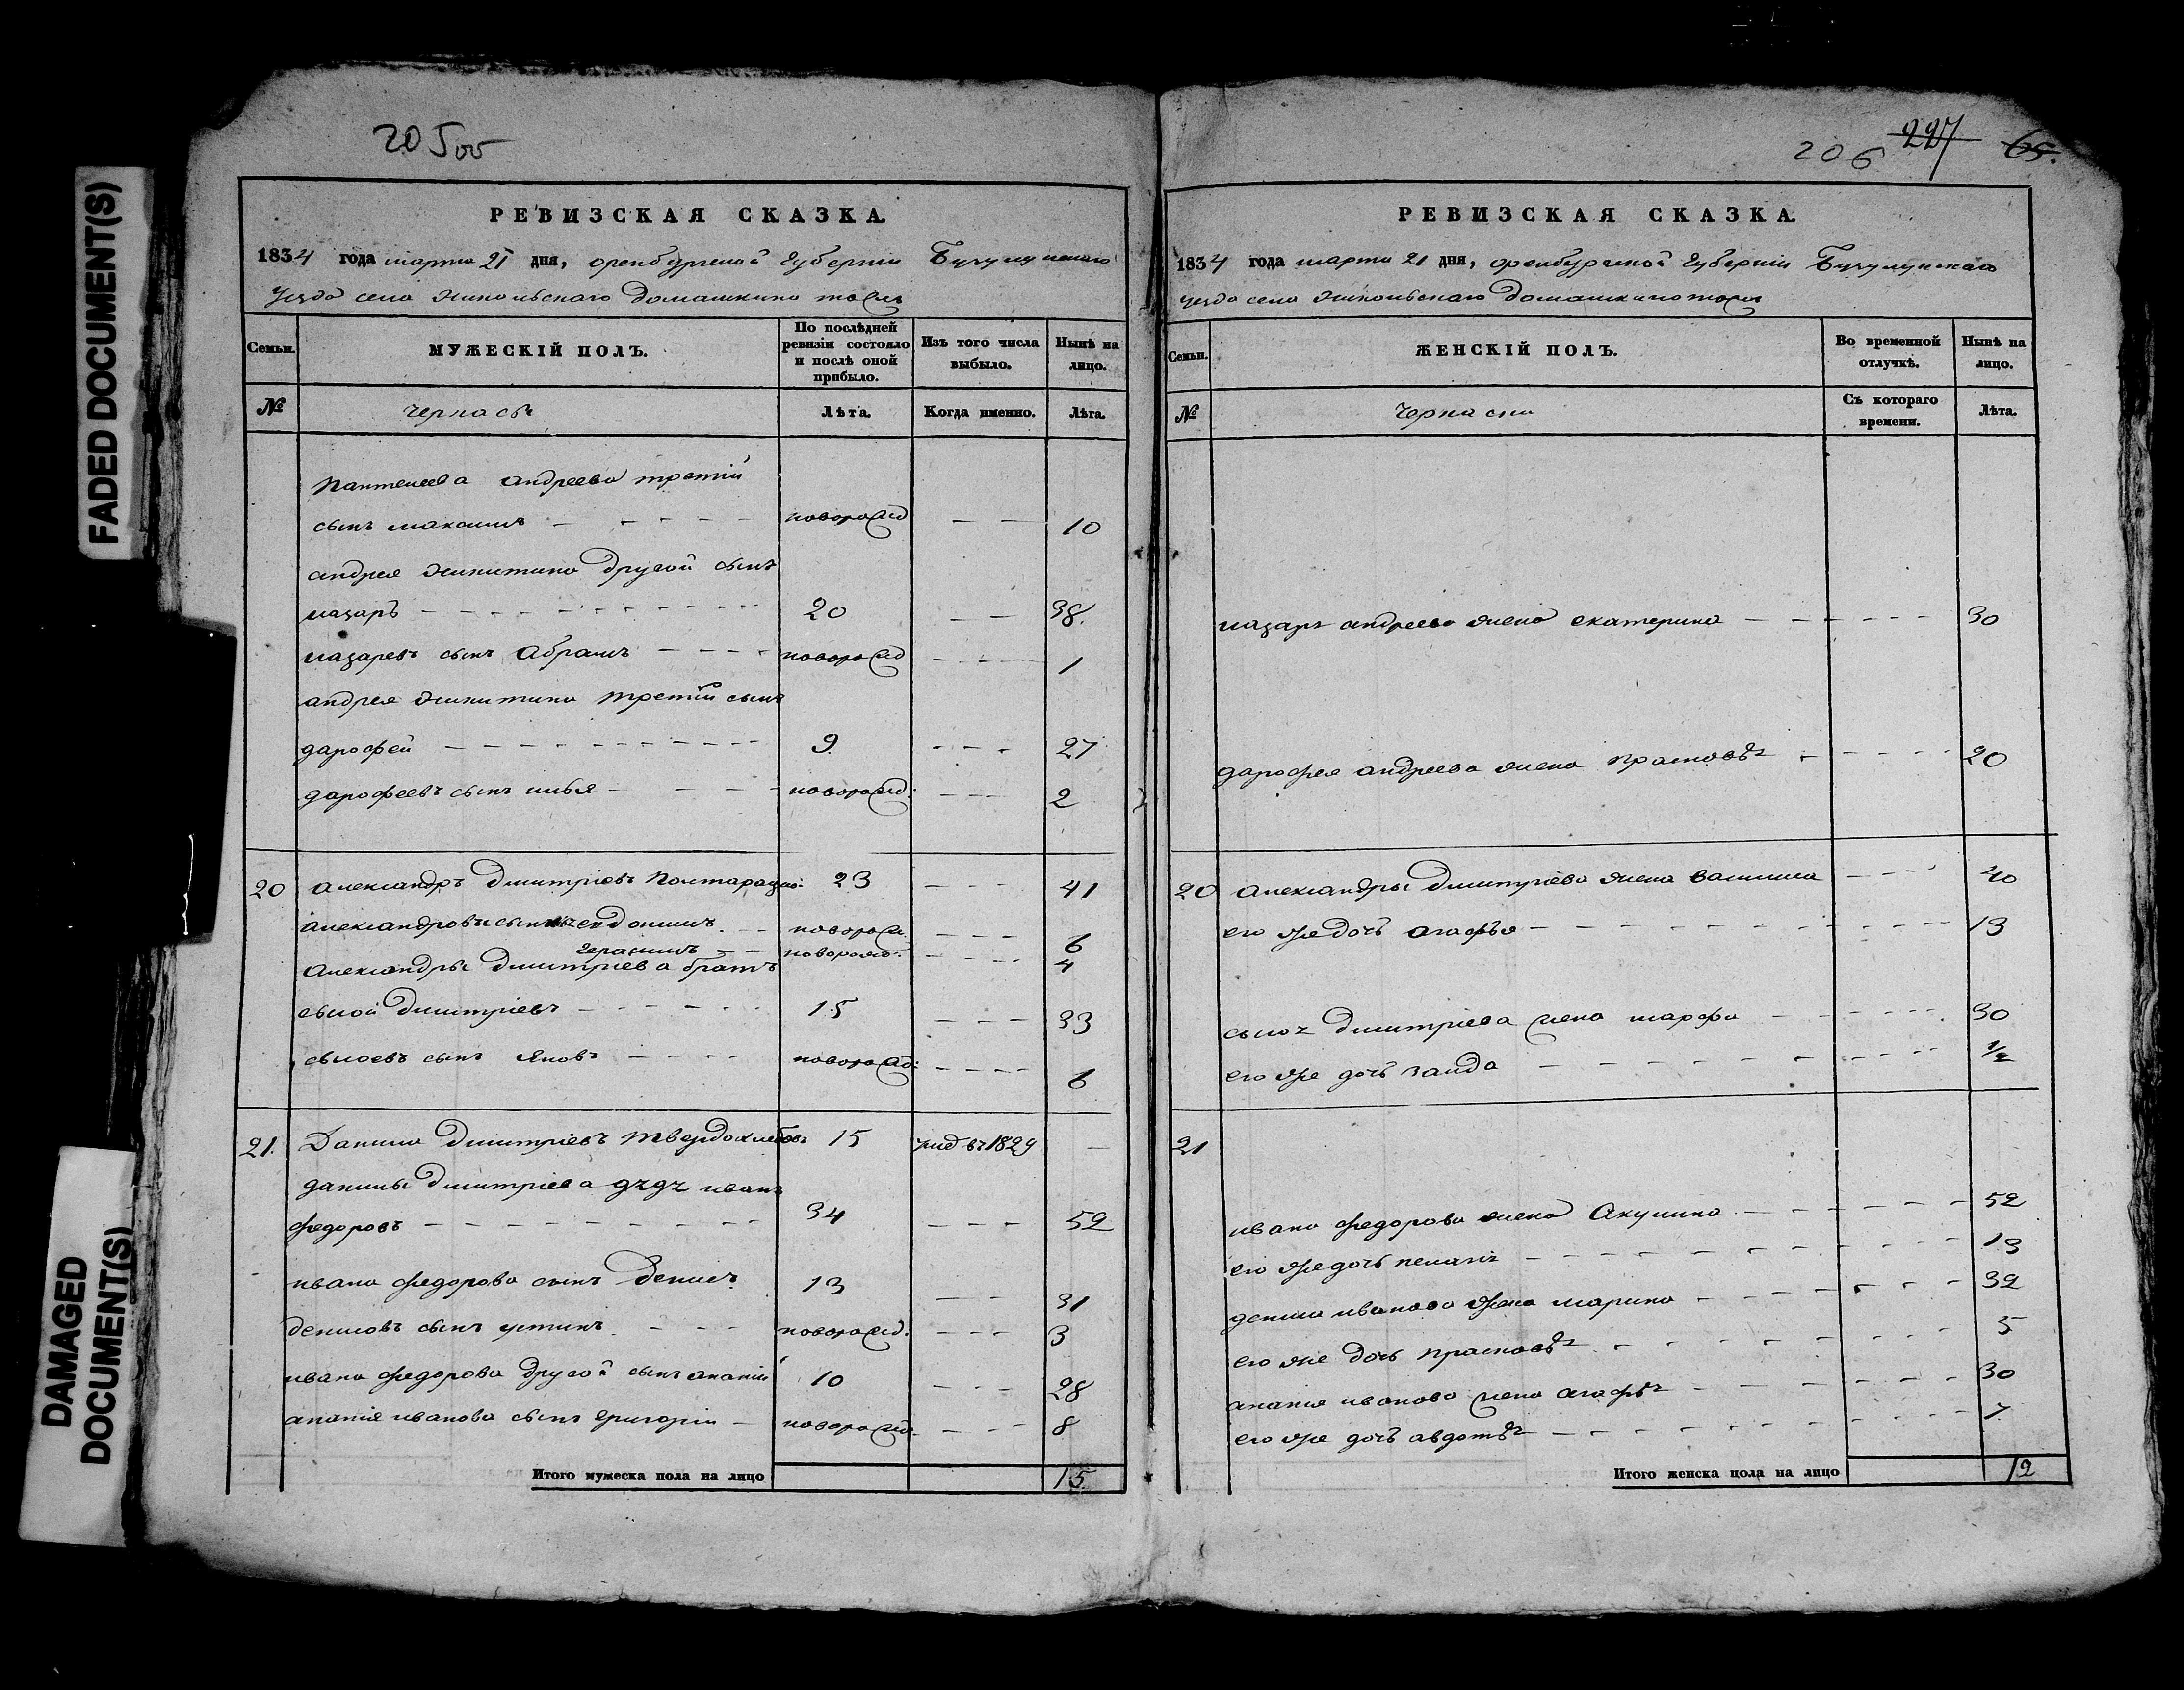 FADED DOCUMENT(S)
DAMAGED
DOCUMENT(S)
205об
РЕВИЗСКАЯ СКАЗКА.
1834 года марта 21 дня, оренбургской губернии Бузулуцкаго
уезда села Никольскаго Домашкино тожъ
Семьи. МУЖЕСКІЙ ПОЛЪ. По послѣдней ревизіи состояло и послѣ оной прибыло. Изъ того числа выбыло. Нынѣ на лицо.
№ черкасы Лѣта. Когда именно. Лѣта.
Пантелеева андреева третій
сынъ максимъ новорожд 10
андрея никитина другой сынъ
назаръ 20 38.
назаревъ сынъ Абрамъ новорожд 1
андрея никитина третій сынъ
дарофей 9 27
дарофеевъ сынъ илья новорожд: 2
20 александръ Дмитріевъ 23 41
александровы сынъ новорож. 6
герасимъ новорожд: 4
Александры Дмитріева братъ
сысой Дмитріевъ 15 33
сысоевъ сынъ яковъ новорожд: 6
21. Данила Дмитріевъ твердохлебовъ 15 въ 1829 —
данилы Дмитріева дядя иванъ
федоровъ 34 52
ивана федорова сынъ Денисъ 13 31
денисовъ сынъ устинъ новорожд. 3
ивана федорова другой сынъ ананій 10 28
ананія иванова сынъ григорій новорожд. 8
Итого мужеска пола на лицо 15.
206 227 65.
РЕВИЗСКАЯ СКАЗКА.
1834 года марта 21 дня, оренбургской губерніи Бузулуцкаго
уезда села Никольскаго Домашкино тожъ
Семьи. ЖЕНСКІЙ ПОЛЪ. Во временной отлучкѣ. Нынѣ на лицо.
№ Черкаски Съ котораго времени. Лѣта.
назара андреева жена екатерина 30
дарофея андреева жена прасковья 20
20 александры Дмитріева жена василиса 40
его же дочь агафья 13
сысоя Дмитріева жена марфа 30
его же дочь 1/2
21
ивана федорова жена Акулина 52
его же дочь пелагея 13
дениса иванова жена марина 32
его же дочь прасковья 5
анания иванова жена агафья 30
его же дочь авдотья 7
Итого женска пола на лицо 12